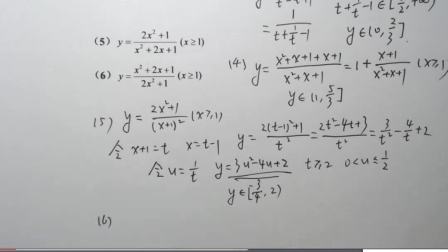 = 1/(t+1/t-1)
t+1/t∈[5/2,+∞)
y∈(0,2/3]
(5) y=(2x²+1)/(x²+2x+1)(x≥1)
(6) y=(x²+2x+1)/(2x²+1)(x≥1)
(4) y=(x²+x+1+x+1)/(x²+x+1)=1+(x+1)/(x²+x+1) (x≥1)
y∈(1,5/3]
(5) y=(2x²+1)/(x+1)² (x≥1)
令 x+1=t x=t-1 y=(2(t-1)²+1)/t²=(2t²-4t+3)/t²=3/t²-4/t+2
令 u=1/t y=3u²-4u+2 t≥2 0<u≤1/2
y∈[3/4,2)
(6)